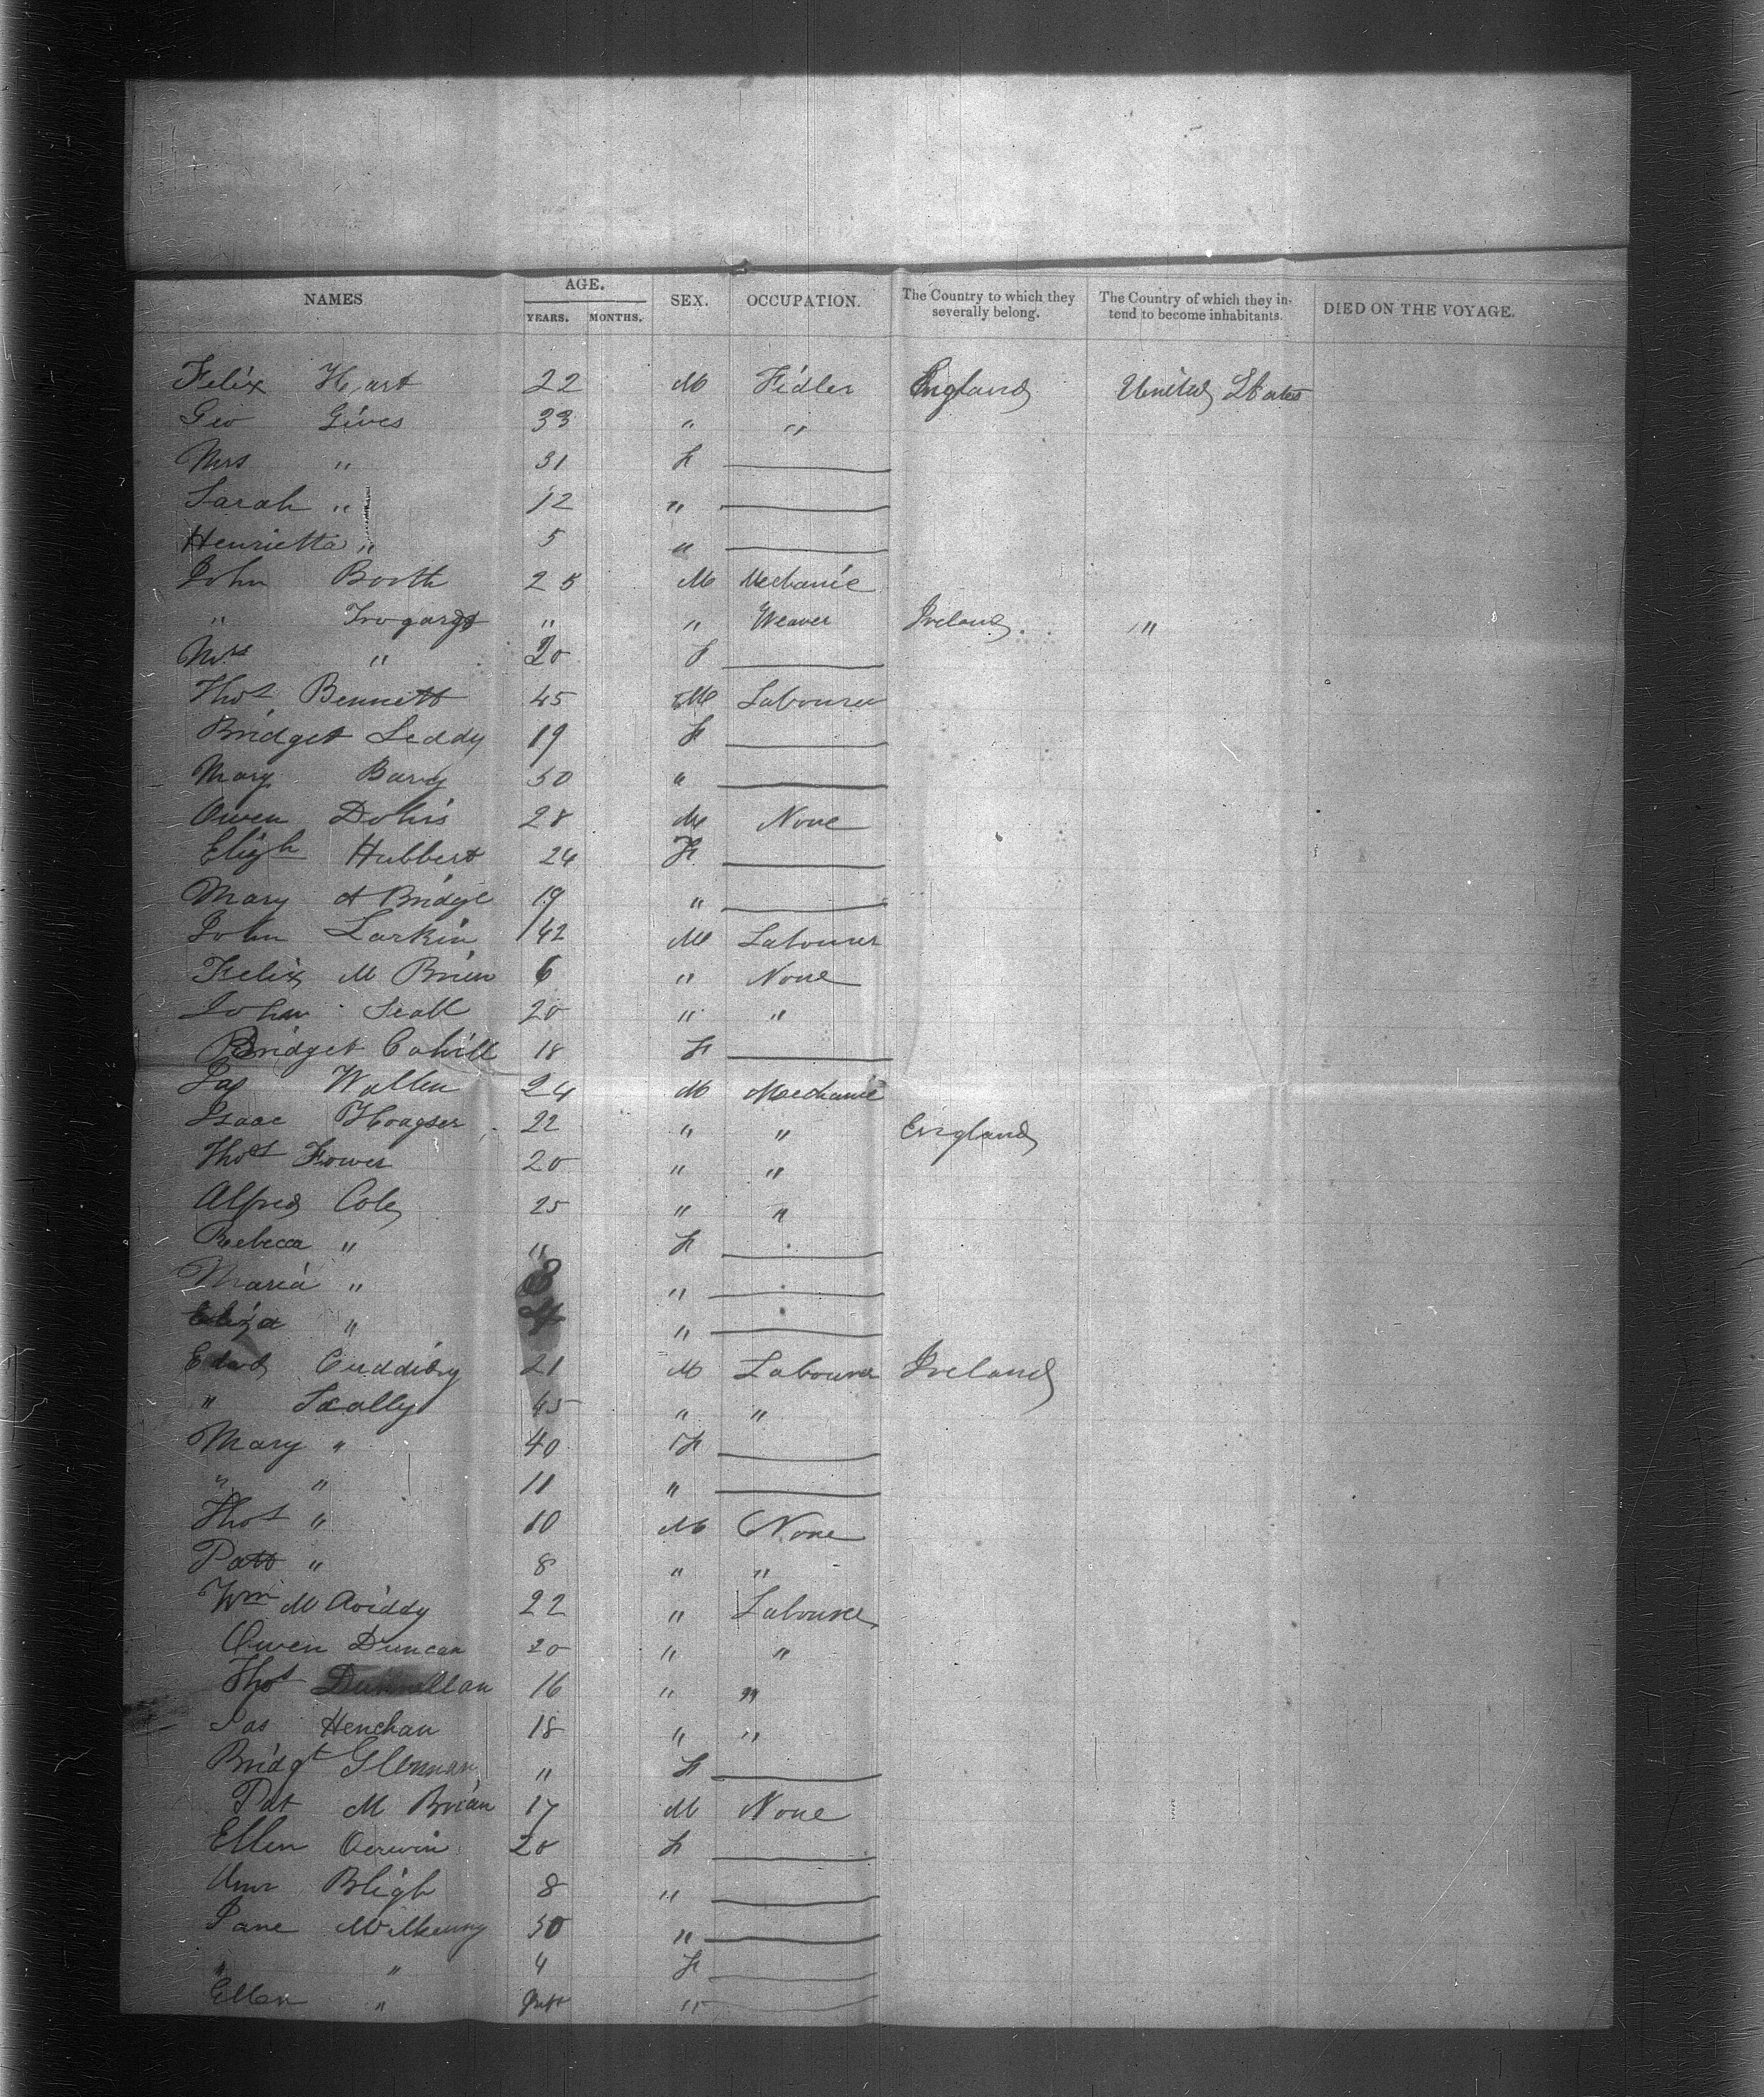 NAMES AGE. YEARS. MONTHS. SEX. OCCUPATION. The Country to which they severally belong. The Country of which they intend to become inhabitants. DIED ON THE VOYAGE.
Felix Hart 22 M Fidler England United States
Geo Gives 33 " "
Mrs " 31 F
Sarah " 12 "
Henrietta " 5 "
John Booth 25 M Mechanic
" " " Weaver Ireland "
Mrs " 20 F
Thos Bennett 45 M Labourer
Bridget Leddy 19 F
Mary Barry 30 "
Owen Dohis 28 M None
Eligh Hubbert 24 F
Mary A Bridge 19 "
John Larkin 42 M Labourer
Felix M Brien 6 " None
John Scall 20 " "
Bridget Cahill 18 F
Jas Wallen 24 M Mechanic
Isaac 22 " " England
Thos Fower 20 " "
Alfred Cole 25 " "
Rebecca " " F
Maria " "
Eliza " "
Edwd Cuddihy 21 M Labourer Ireland
" Scally 45 " "
Mary " 40 F
" " 11 "
Thos " 10 M None
Patt " 8 " "
Wm M Aviddy 22 " Labourer
Owen Duncan 20 " "
Thos 16 " "
Jas Henehan 18 " "
Bridgt Glennan " F
Pat M Brian 17 M None
Ellen 20 F
Ann Bligh 8 "
Jane 30 "
" " 4 F
Ellen " "